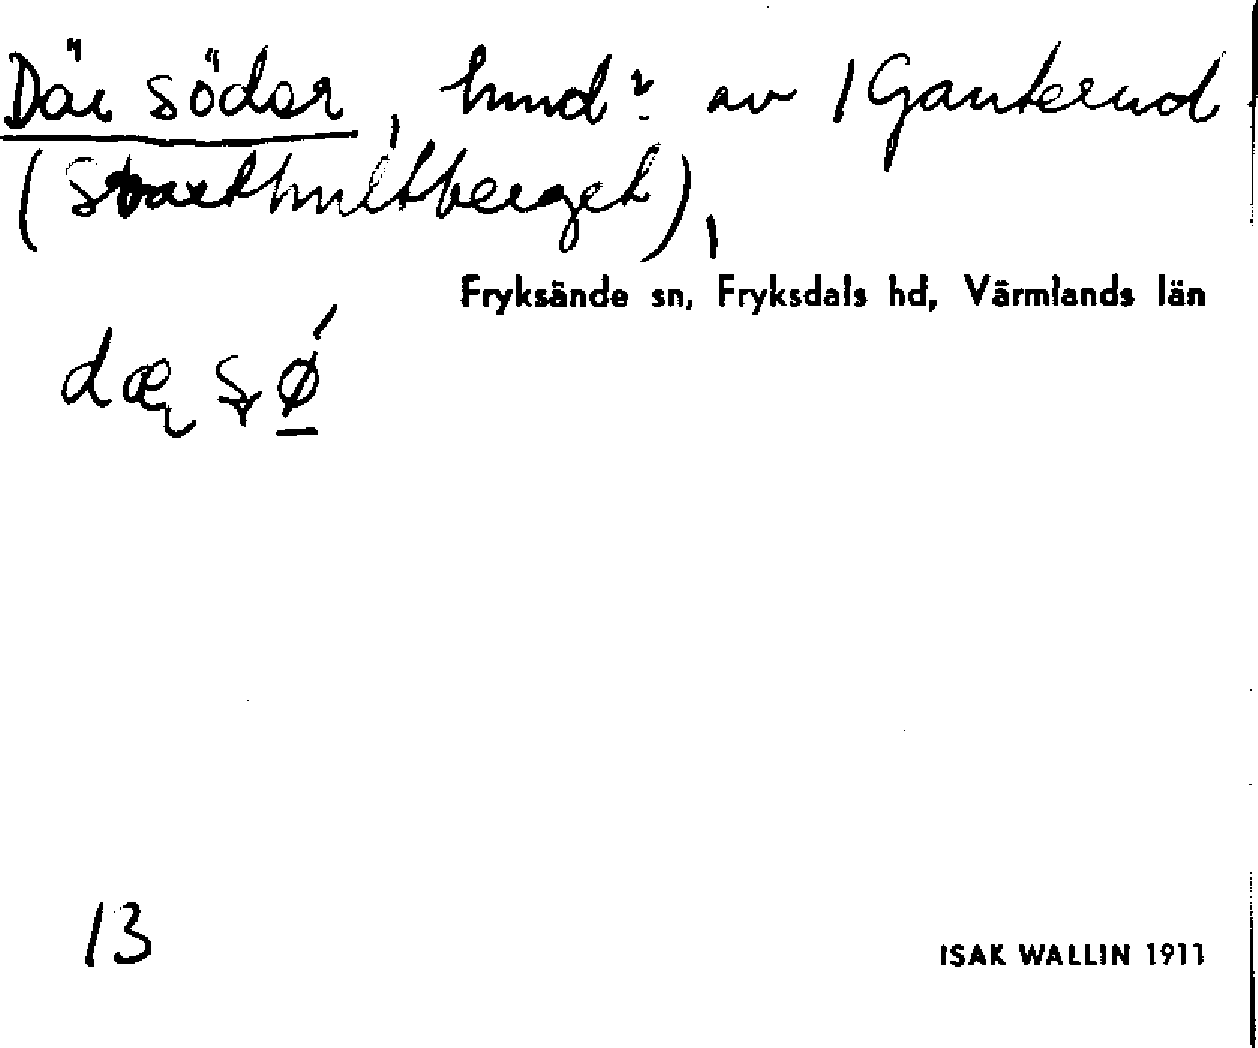 Där söder, hmd? av 1 Gauterud
(Svarthultberget),
Fryksände sn, Fryksdals hd, Värmlands län
dæ
13
ISAK WALLIN 1911